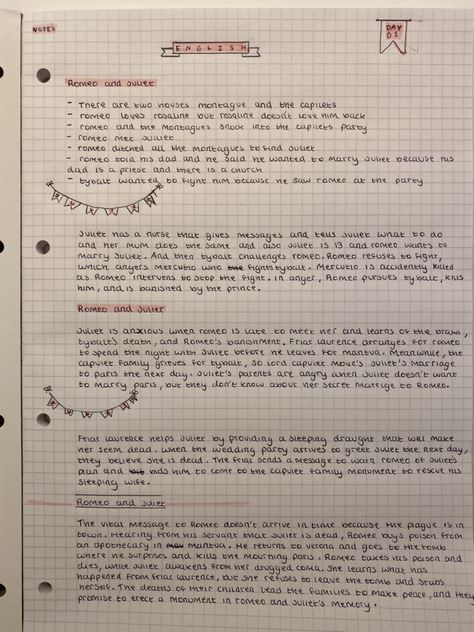 NOTES
DAY
01
ENGLISH
Romeo and Juliet
- There are two houses montague and the capulets
- romeo loves rosaline but rosaline doesn't love him back
- romeo and the montagues snuck into the capulets party
- romeo met Juliet
- romeo ditched all the montagues to find Juliet
- romeo told his dad and he said he wanted to marry Juliet because his
dad is a priest and there is a church
- tybalt wanted to fight him because he saw romeo at the party
Juliet has a nurse that gives messages and tells Juliet what to do
and her mum does the same and also Juliet is 13 and romeo wants to
marry Juliet. And then tybalt challenges romeo. Romeo refuses to fight,
which angers mercutio who fights tybalt. Mercutio is accidently killed
as Romeo intervens to stop the fight. in anger, Romeo pursues tybalt, kills
him, and is banished by the prince.
Romeo and Juliet
Juliet is anxious when romeo is late to meet her and learns of the brawl,
tybalt's death, and Romeo's banishment. Friar laurence arranges for romeo
to spend the night with Juliet before he leaves for mantua. Meanwhile, the
capulet family grieves for tybalt, so Lord capulet move's Juliet's marriage
to paris the next day. Juliet's parents are angry when Juliet doesn't want
to marry paris, but they don't know about her secret marrige to Romeo.
Friar Laurence helps Juliet by providing a sleeping draught that will make
her seem dead. when the wedding party arrives to greet Juliet the next day,
they believe she is dead. The friar sends a message to warn romeo of Juliet's
plan and bids him to come to the capulet family monument to rescue his
sleeping wife.
Romeo and Juliet
The vital message to Romeo doesn't arrive in time because the plague is in
town. Hearing from his servant that Juliet is dead, Romeo buys poison from
an apothecary in mantua. He returns to verona and goes to the tomb
where he surprises and kills the mourning paris. Romeo takes his poison and
dies, while Juliet awakens from her drugged coma. She learns what has
happened from friar laurence, but she refuses to leave the tomb and stabs
herself. The deaths of their children lead the families to make peace, and they
promise to erect a monument in romeo and Juliet's memory.